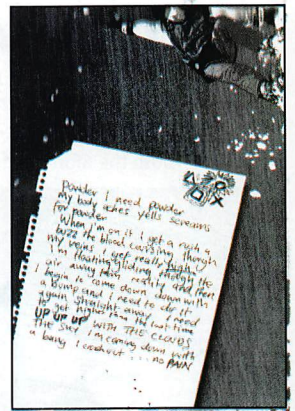 Powder I need powder
my body aches yells screams
for powder
When I'm on it I get a rush a
buzz the blood coursing through
my veins I get really high
I'm floating gliding through the
air away from reality and then
I begin to come down down with
a bump and I need to do it
again, straight away I need
to get higher than the last time
UP UP UP WITH THE CLOUDS
THE SKY I'm coming down with
a bang I crashout ... no PAIN